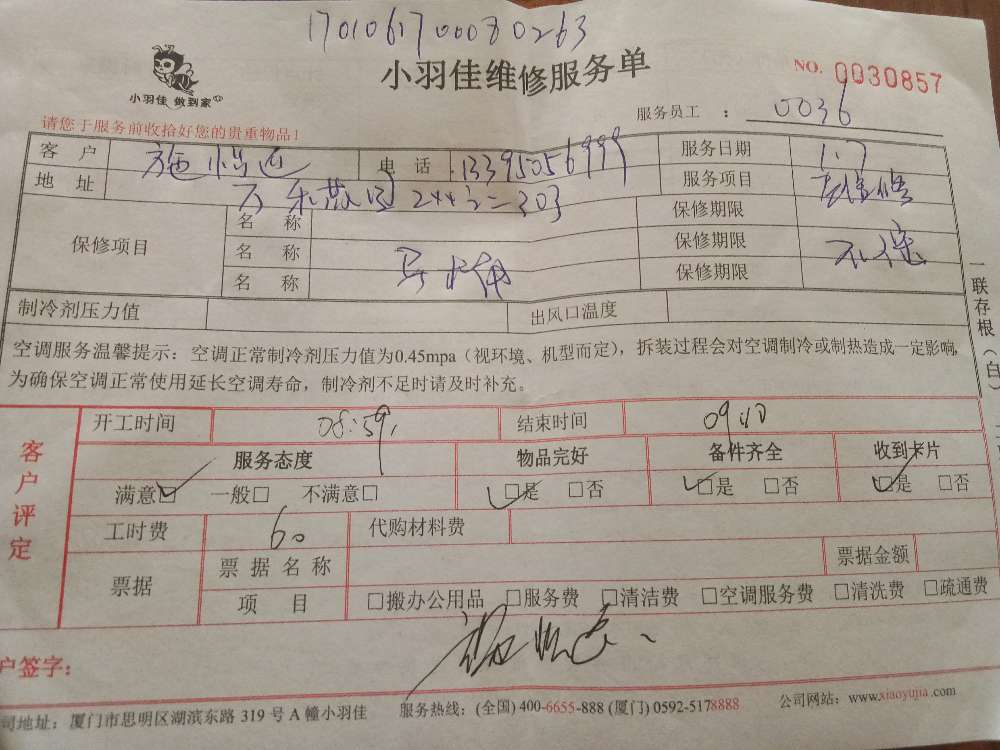 1701061700080263
小羽佳维修服务单
NO. 0030857
小羽佳 做到家
服务员工 : 0036
请您于服务前收拾好您的贵重物品！
客 户 施 电 话 13395056999 服务日期 1.7
地 址 244 二 303 服务项目
保修项目 名 称 保修期限
名 称 保修期限 不保
名 称 马 保修期限
制冷剂压力值 出风口温度
空调服务温馨提示：空调正常制冷剂压力值为0.45mpa（视环境、机型而定），拆装过程会对空调制冷或制热造成一定影响，
为确保空调正常使用延长空调寿命，制冷剂不足时请及时补充。
一联存根（白）
客户评定
开工时间 08:59 结束时间 09:10
服务态度 物品完好 备件齐全 收到卡片
满意□ 一般□ 不满意□ □是 □否 □是 □否 □是 □否
工时费 60 代购材料费
票据 票据名称 票据金额
项 目 □搬办公用品 □服务费 □清洁费 □空调服务费 □清洗费 □疏通费
户签字：
司地址：厦门市思明区湖滨东路 319 号 A 幢小羽佳 服务热线：(全国) 400-6655-888 (厦门) 0592-5178888 公司网站：www.xiaoyujia.com